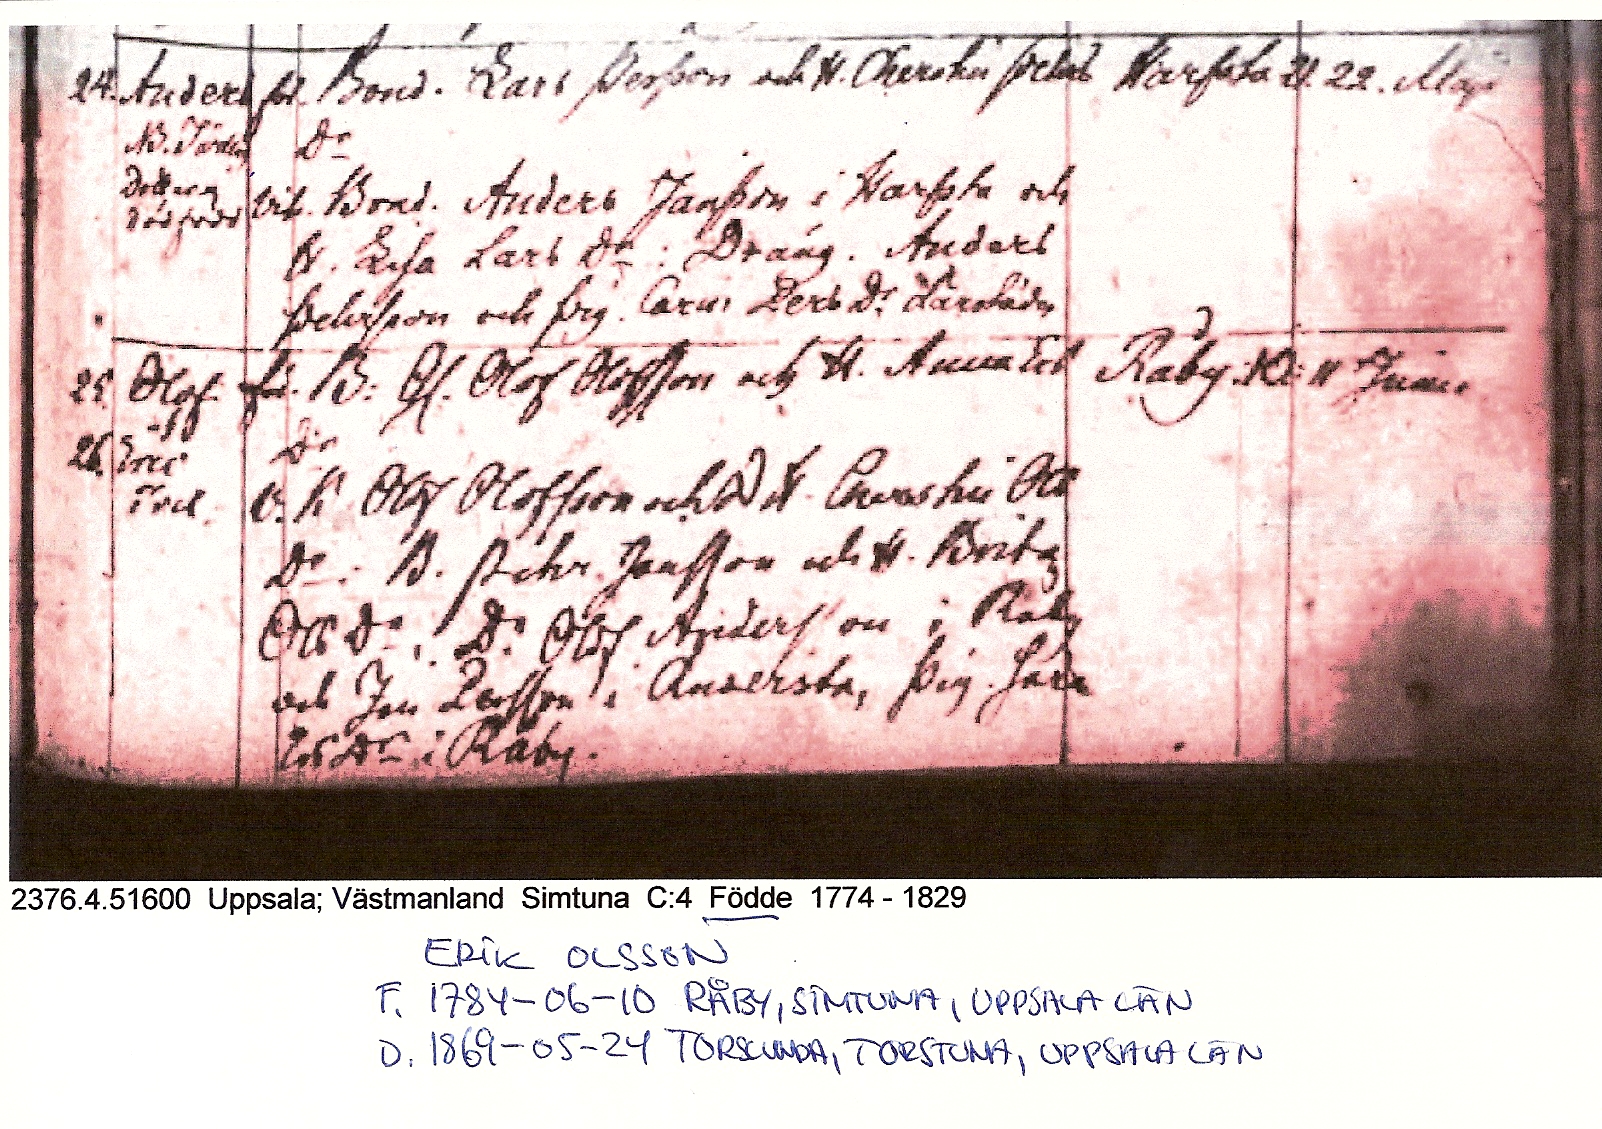 24. Anders för. Bond. Lars Persson och H. Cherstin Pehrs Harfsta d. 22. Maji
NB. Dr
vit. Bond. Anders Jansson i Harfsta och
H. Lisa Lars Dr: Dräng. Anders
Pehrsson och pig. Carin Pers Dr.
25. Olof. för. B: Olof Olofsson och H. Anna Ers Råby. Junii
och
26. Eric Dr
Tvil. v. B Olof Olofsson och H. Cherstin Ols
Dr: B. Pehr Jansson och H. Brita
Ols Dr, Dr. Olof Andersson i Råby
och Jan Persson i pig. Sara
Ers Dr i Råby.
2376.4.51600 Uppsala; Västmanland Simtuna C:4 Födde 1774 - 1829
ERIK OLSSON
F. 1784-06-10 RÅBY, SIMTUNA, UPPSALA LÄN
D. 1869-05-24 TORSLUNDA, TORSTUNA, UPPSALA LÄN